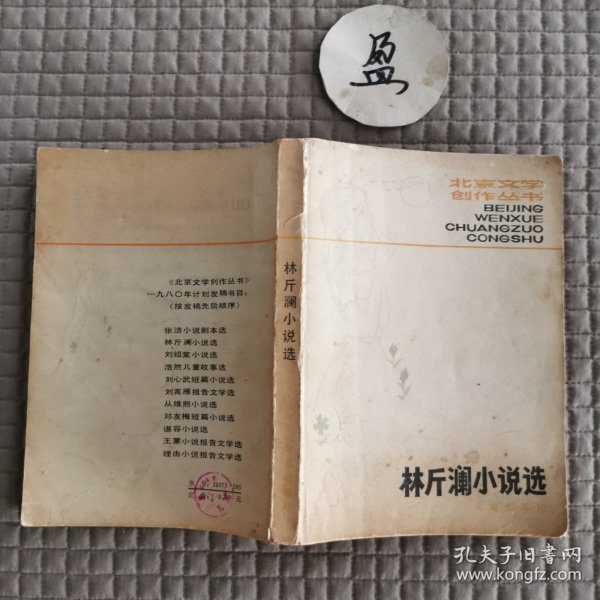 盈
北京文学
创作丛书
BEIJING
WENXUE
CHUANGZUO
CONGSHU
林斤澜小说选
林斤澜小说选
《北京文学创作丛书》
一九八〇年计划发稿书目:
(按发稿先后顺序)
张洁小说剧本选
林斤澜小说选
刘绍棠小说选
浩然儿童故事选
刘心武短篇小说选
刘宾雁报告文学选
从维熙小说选
邓友梅短篇小说选
谌容小说选
王蒙小说报告文学选
理由小说报告文学选
孔夫子旧书网
www.kongfz.com